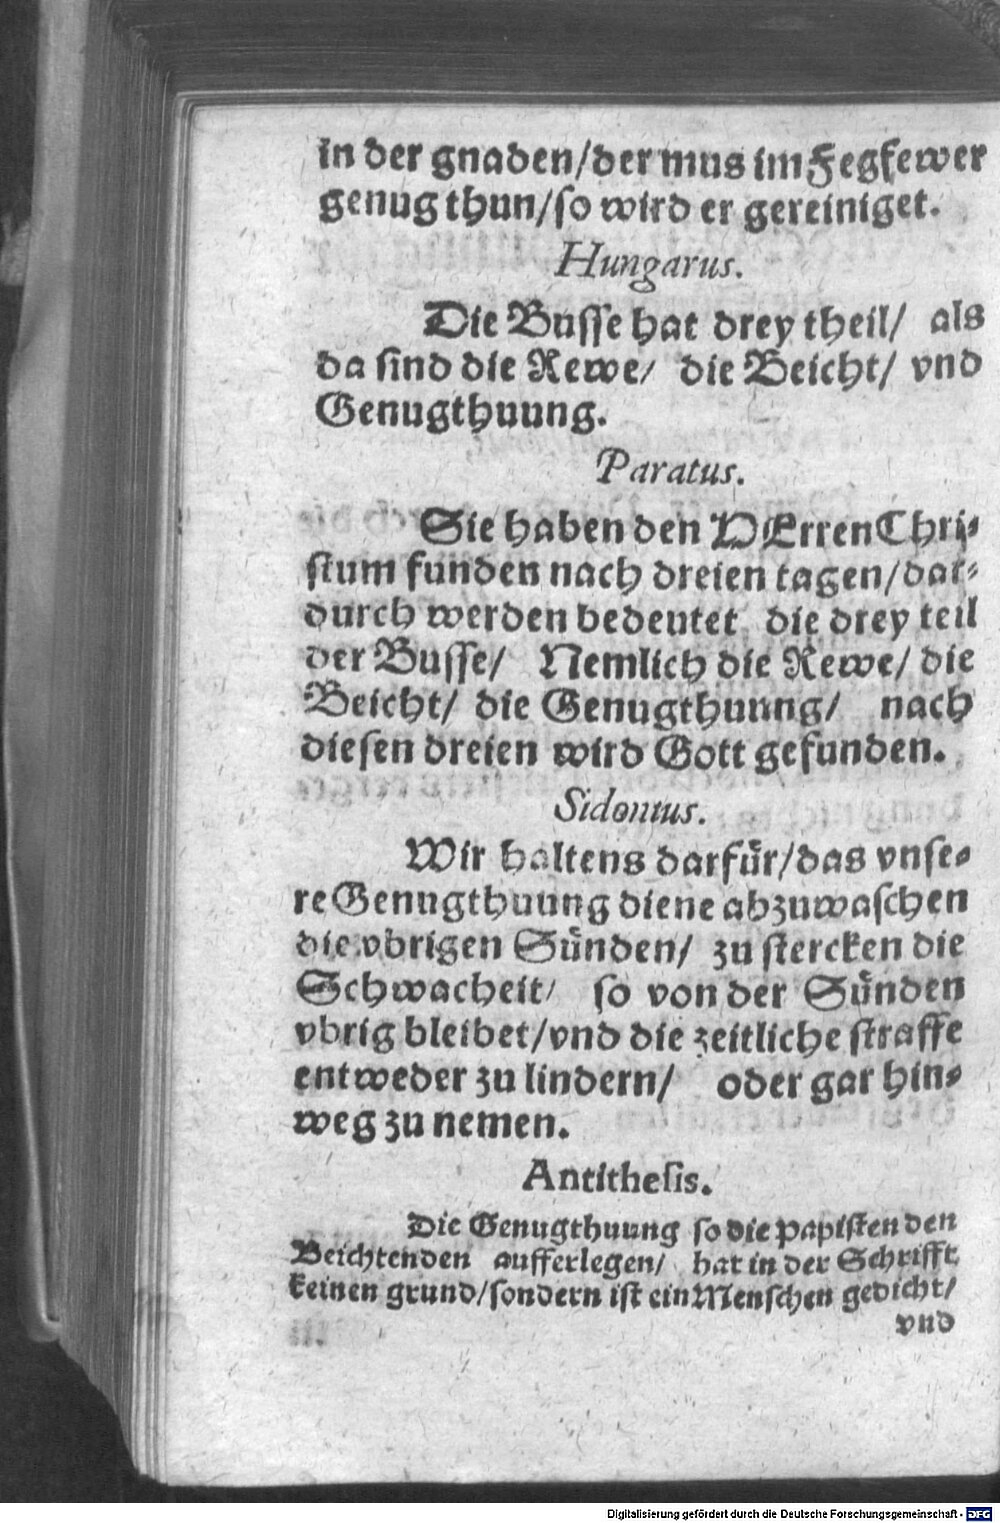 in der gnaden/der mus im Fegfewer
genug thun/so wird er gereiniget.
Hungarus.
Die Busse hat drey theil/ als
da sind die Rewe/ die Beicht/ vnd
Genugthuung.
Paratus.
Sie haben den HErren Chri-
stum funden nach dreien tagen/dar-
durch werden bedeutet die drey teil
der Busse/ Nemlich die Rewe/ die
Beicht/ die Genugthuung/ nach
diesen dreien wird Gott gefunden.
Sidonius.
Wir haltens darfür/das vnse-
re Genugthuung diene abzuwaschen
die vbrigen Sünden/ zu stercken die
Schwacheit/ so von der Sünden
vbrig bleibet/vnd die zeitliche straffe
entweder zu lindern/ oder gar hin-
weg zu nemen.
Antithesis.
Die Genugthuung so die Papisten den
Beichtenden aufferlegen/ hat in der Schrifft
keinen grund/sondern ist ein Menschen gedicht/
vnd
Digitalisierung gefördert durch die Deutsche Forschungsgemeinschaft - DFG